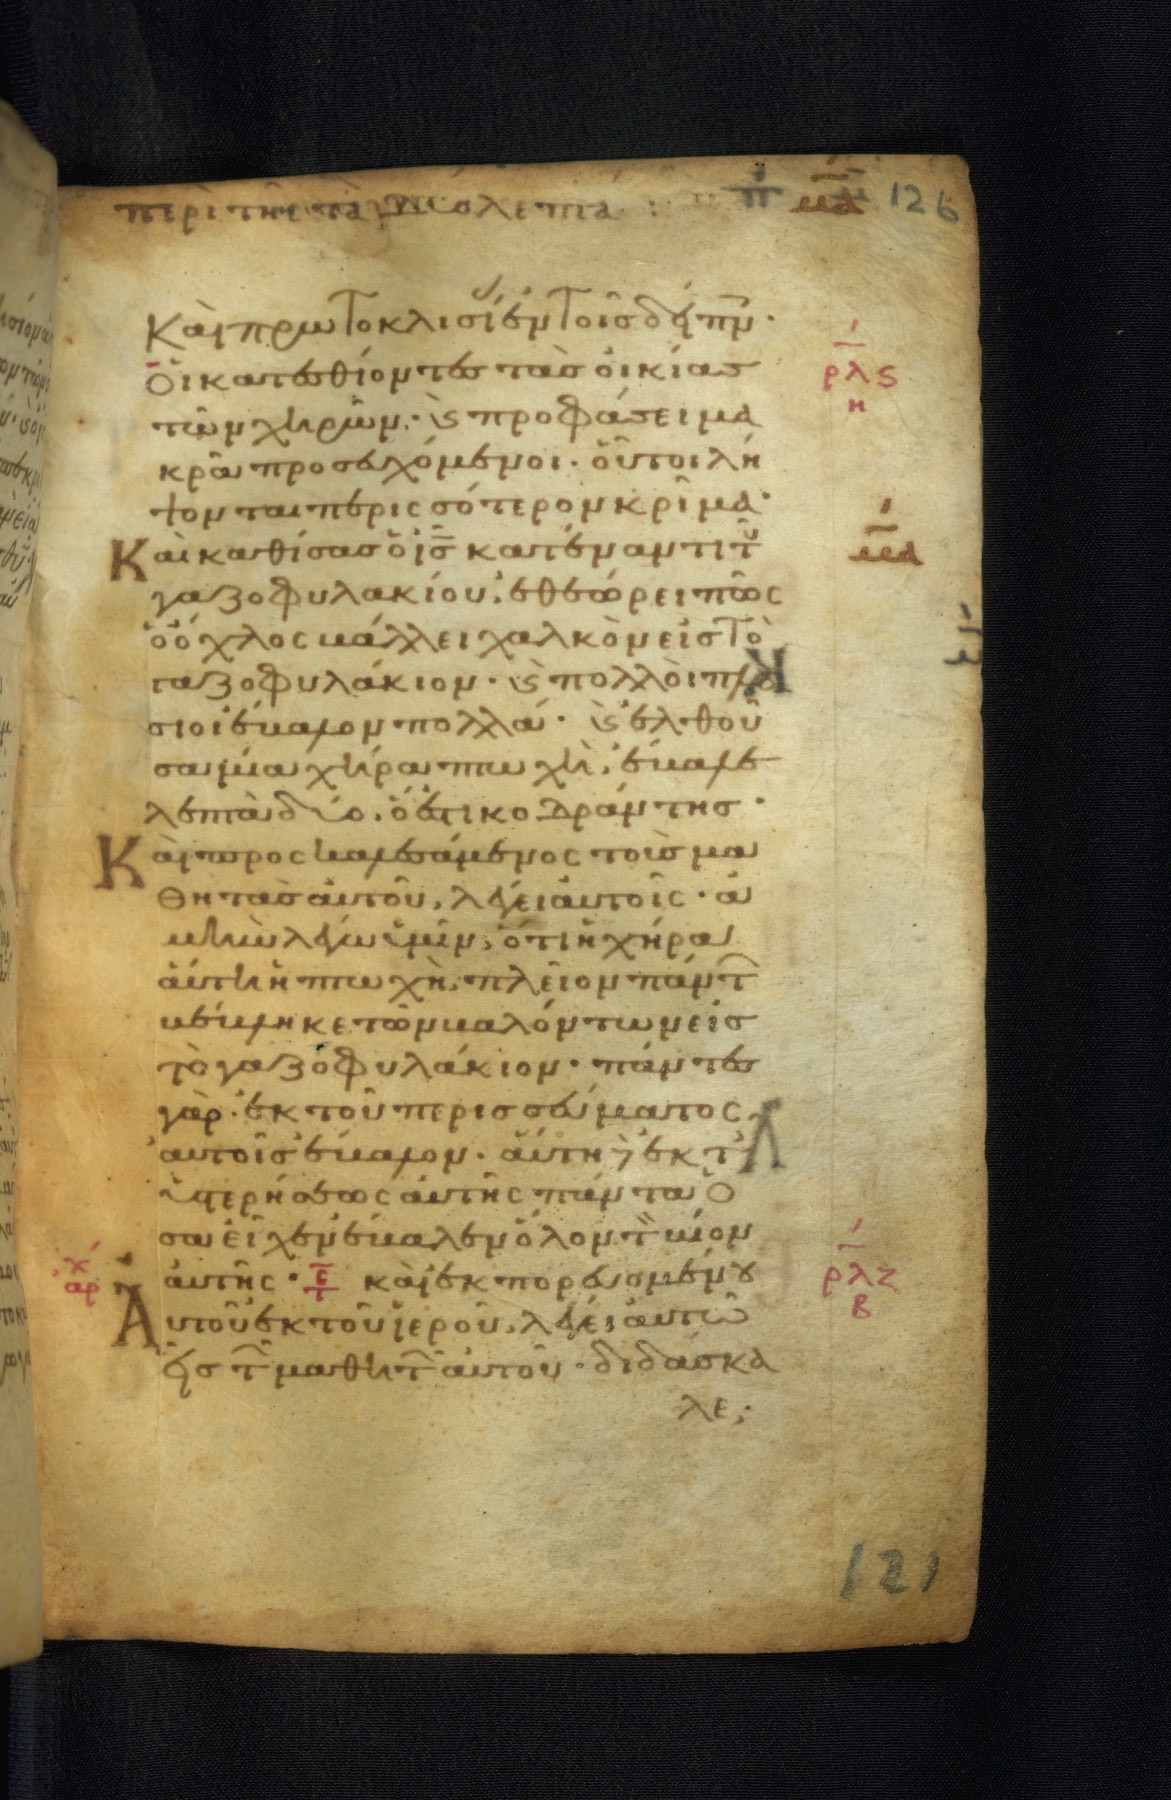 περὶ τῆς τὰ β λεπτά :
μα
126
Καὶ πρωτοκλισί ἐν τοῖς δείπν·
ρλς
η
Οἱ κατεσθίοντες τὰς οἰκίας
τῶν χηρῶν· ϛ προφάσει μα
κρᾶ προσευχόμενοι· οὗτοι λή
ψονται περισσότερον κρῖμα·
μα
Καὶ καθίσας ὁ ις κατέναντι τ
γαζοφυλακίου, ἐθεώρει πῶς
ὁ ὄχλος βάλλει χαλκὸν εἰς τὸ
γαζοφυλάκιον· ϛ πολλοὶ πλό
σιοι ἔβαλον πολλά· ϛ ἐλθοῦ
σα μία χήρα πτωχὴ, ἔβαλε
λεπτὰ δύο, ὅ ἐστι κοδράντης·
Καὶ προσκαλεσάμενος τοὺς μα
θητὰς αὐτοῦ, λέγει αὐτοῖς· ἀ
μὴν λέγω ὑμῖν, ὅτι ἡ χήρα
αὕτη ἡ πτωχὴ, πλεῖον πάντ
βέβληκε τῶν βαλόντων εἰς
τὸ γαζοφυλάκιον· πάντες
γὰρ ἐκ τοῦ περισσεύματος
αὐτοῖς ἔβαλον· αὕτη δὲ ἐκ τ
ὑστερήσεως αὐτῆς πάντα ὅ
σα εἶχεν ἔβαλεν ὅλον τ βίον
αὐτῆς· τ καὶ ἐκπορευομένου
ρλζ
β
αρχ
Αὐτοῦ ἐκ τοῦ ἱεροῦ, λέγει αὐτῶ
εἷς τ μαθητ αὐτοῦ· διδάσκα
λε;
121